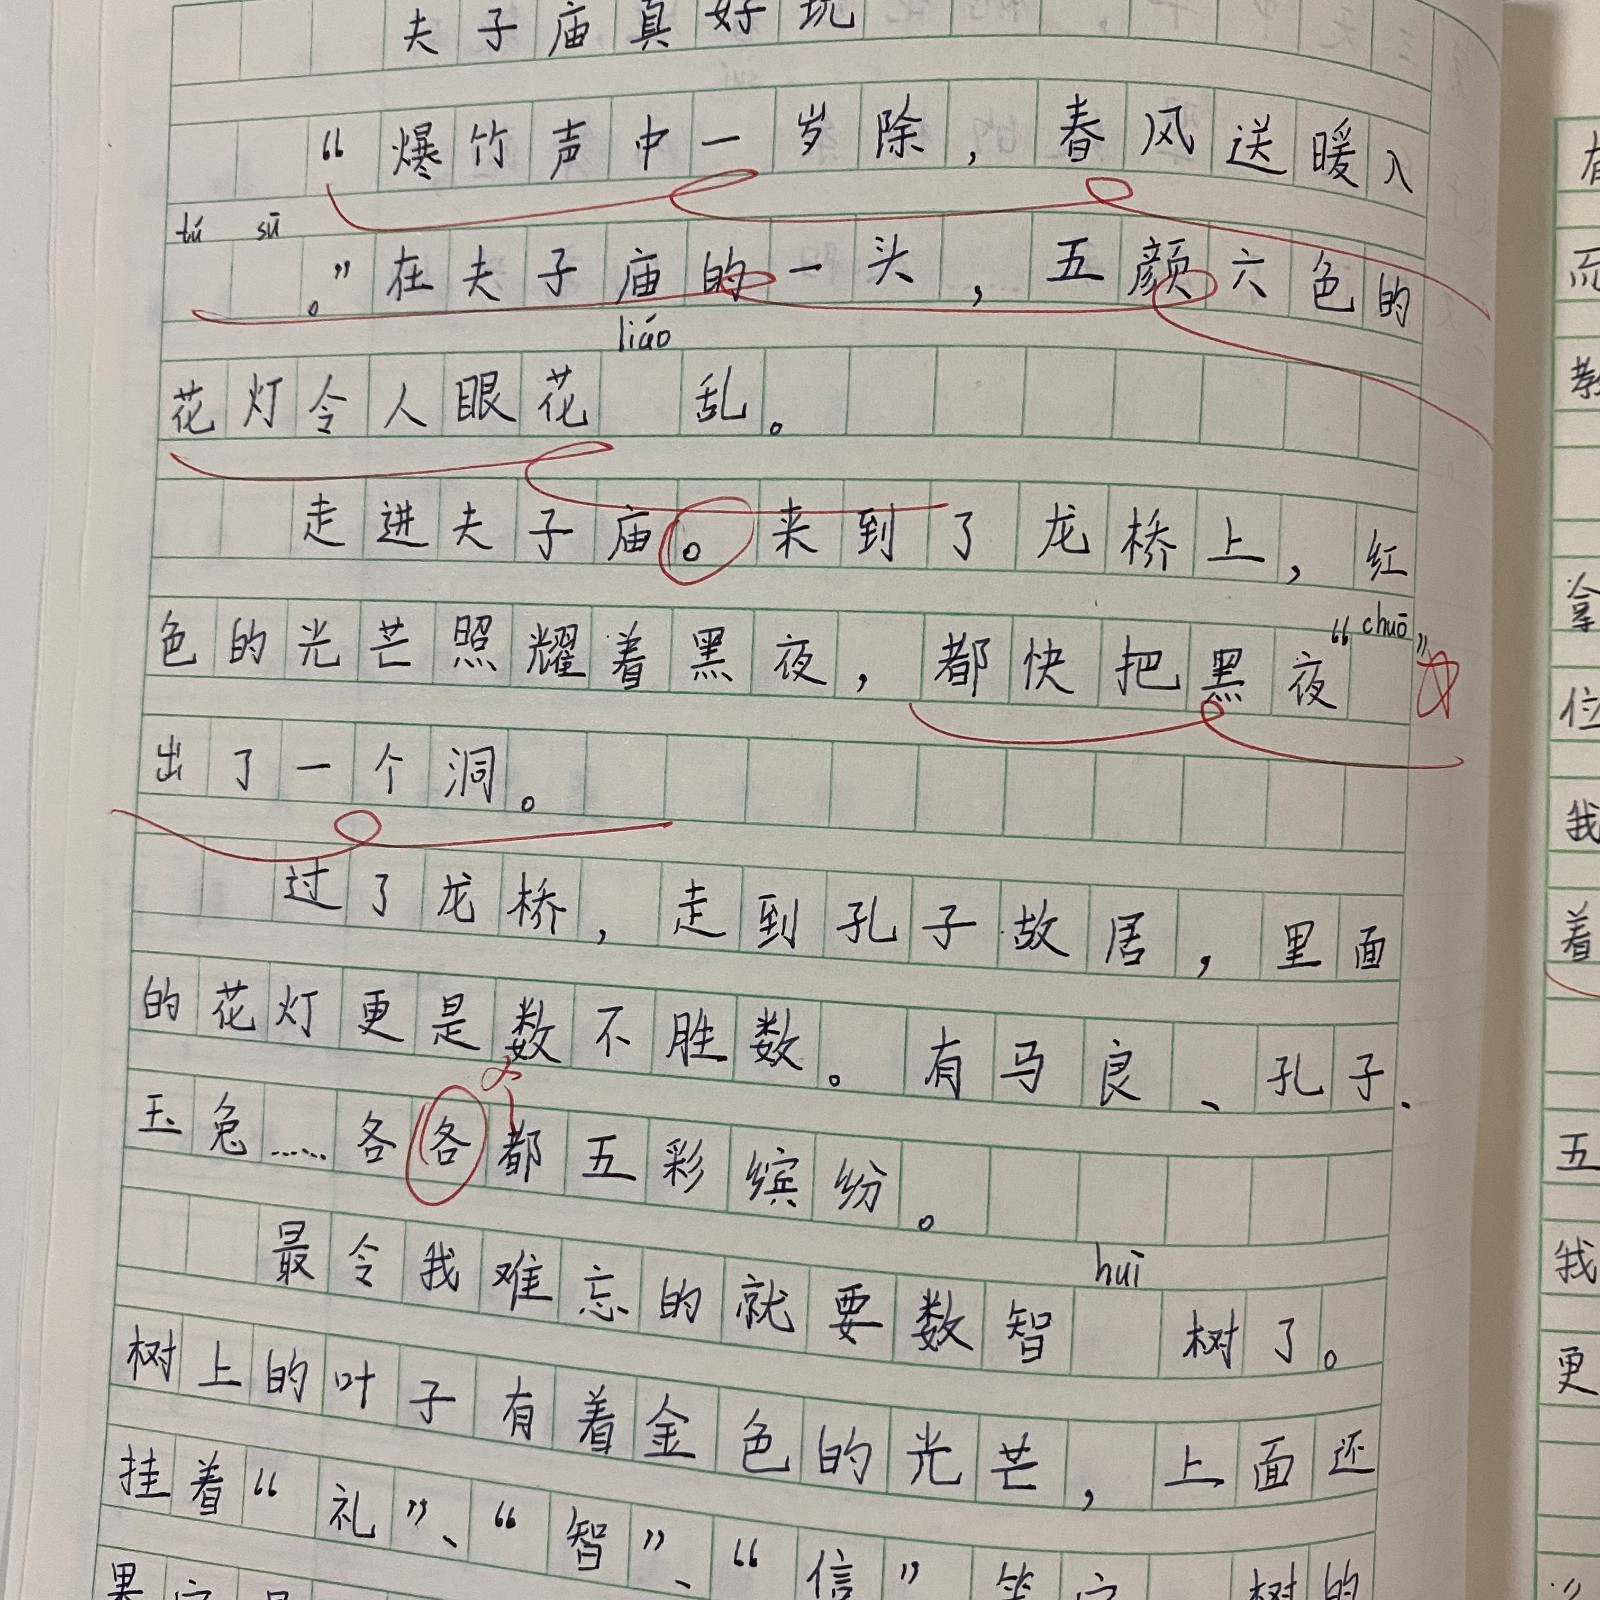 夫子庙真好玩
“爆竹声中一岁除，春风送暖入
tú sū
。”在夫子庙的一头，五颜六色的
liáo
花灯令人眼花 乱。
走进夫子庙。来到了龙桥上，红
“chuō”
色的光芒照耀着黑夜，都快把黑夜
出了一个洞。
过了龙桥，走到孔子故居，里面
的花灯更是数不胜数。有马良、孔子、
玉兔……各各都五彩缤纷。
huì
最令我难忘的就要数智 树了。
树上的叶子有着金色的光芒，上面还
挂着“礼”、“智”、“信”等字，树的
有
教
拿
位
我
着
五
我
更